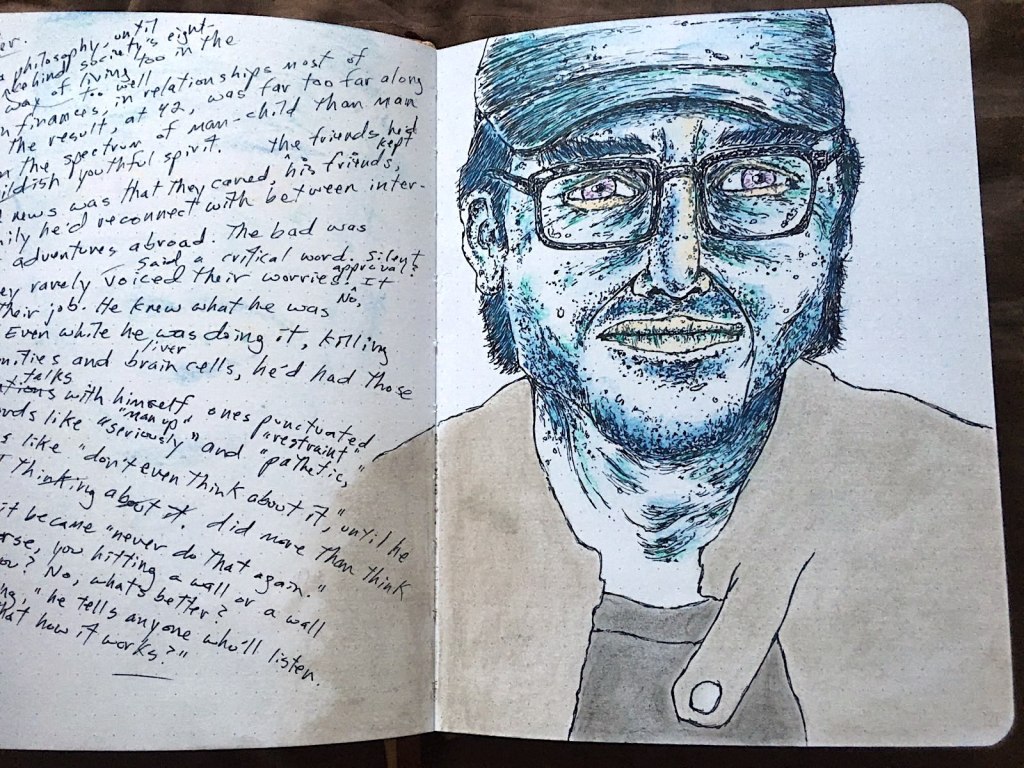 er.
a philosophy, until
behind society's eight-
way of living too in the
to well
n finances, in relationships most of
the result, at 42, was far too far along
n the spectrum of man-child than man
ildish youthful spirit. the friends he'd kept
d news was that they cared, his friends,
mily he'd reconnect with between inter-
adventures abroad. The bad was
said a critical word. silent approval?
ey rarely voiced their worries. It
their job. He knew what he was No,
Even while he was doing it, killing
liver
nities and brain cells, he'd had those
talks
ations with himself, ones punctuated
"man up," "restraint"
ords like "seriously" and "pathetic,"
s like "don't even think about it," until he
t thinking about it. did more than think
it became "never do that again."
rse, you hitting a wall or a wall
ou? No, what's better?
ng," he tells anyone who'll listen.
hat how it works?"